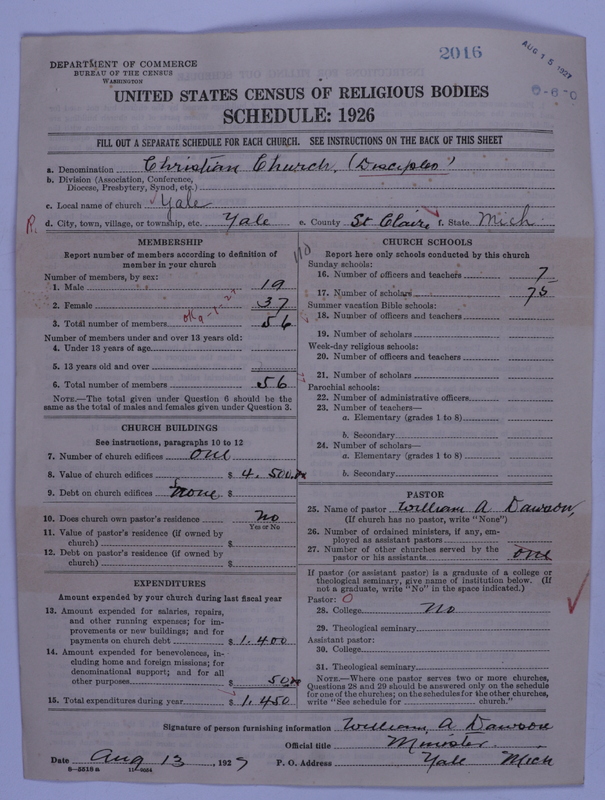 2016
AUG 15 1927
DEPARTMENT OF COMMERCE
BUREAU OF THE CENSUS
WASHINGTON
UNITED STATES CENSUS OF RELIGIOUS BODIES
SCHEDULE: 1926
FILL OUT A SEPARATE SCHEDULE FOR EACH CHURCH. SEE INSTRUCTIONS ON THE BACK OF THIS SHEET
a. Denomination Christian Church, (Disciples)
b. Division (Association, Conference, Diocese, Presbytery, Synod, etc.)
c. Local name of church Yale
d. City, town, village, or township, etc. Yale e. County St Claire f. State Mich
MEMBERSHIP
Report number of members according to definition of member in your church
Number of members, by sex:
1. Male 19
2. Female 37
3. Total number of members 56
Number of members under and over 13 years old:
4. Under 13 years of age
5. 13 years old and over
6. Total number of members 56
NOTE.—The total given under Question 6 should be the same as the total of males and females given under Question 3.
CHURCH BUILDINGS
See instructions, paragraphs 10 to 12
7. Number of church edifices one
8. Value of church edifices $ 4,500.00
9. Debt on church edifices none $
10. Does church own pastor's residence no
Yes or No
11. Value of pastor's residence (if owned by church) $
12. Debt on pastor's residence (if owned by church) $
EXPENDITURES
Amount expended by your church during last fiscal year
13. Amount expended for salaries, repairs, and other running expenses; for improvements or new buildings; and for payments on church debt $ 1,400
14. Amount expended for benevolences, including home and foreign missions; for denominational support; and for all other purposes $ 50
15. Total expenditures during year $ 1,450
CHURCH SCHOOLS
Report here only schools conducted by this church
Sunday schools:
16. Number of officers and teachers 7
17. Number of scholars 75
Summer vacation Bible schools:
18. Number of officers and teachers
19. Number of scholars
Week-day religious schools:
20. Number of officers and teachers
21. Number of scholars
Parochial schools:
22. Number of administrative officers
23. Number of teachers—
a. Elementary (grades 1 to 8)
b. Secondary
24. Number of scholars—
a. Elementary (grades 1 to 8)
b. Secondary
PASTOR
25. Name of pastor William A Dawson,
(If church has no pastor, write "None")
26. Number of ordained ministers, if any, employed as assistant pastors
27. Number of other churches served by the pastor or his assistants one
If pastor (or assistant pastor) is a graduate of a college or theological seminary, give name of institution below. (If not a graduate, write "No" in the space indicated.)
Pastor: O
28. College No
29. Theological seminary
Assistant pastor:
30. College
31. Theological seminary
NOTE.—Where one pastor serves two or more churches, Questions 28 and 29 should be answered only on the schedule for one of the churches; on the schedules for the other churches, write "See schedule for church."
Signature of person furnishing information William, A Dawson
Official title Minister
Date Aug 13, 1927 P. O. Address Yale Mich
8—5518 a